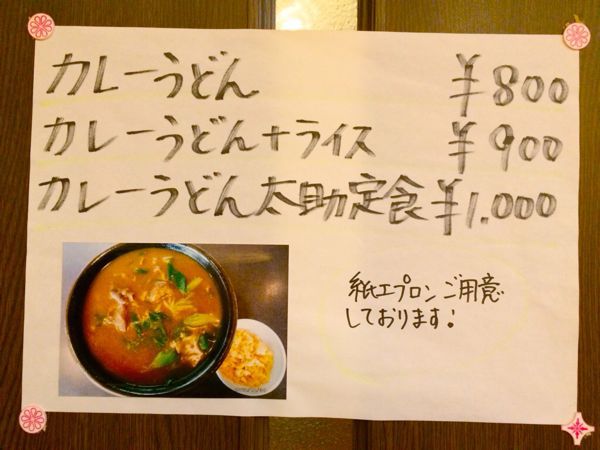 カレーうどん ¥800
カレーうどん+ライス ¥900
カレーうどん太助定食 ¥1.000
紙エプロンご用意
しております!